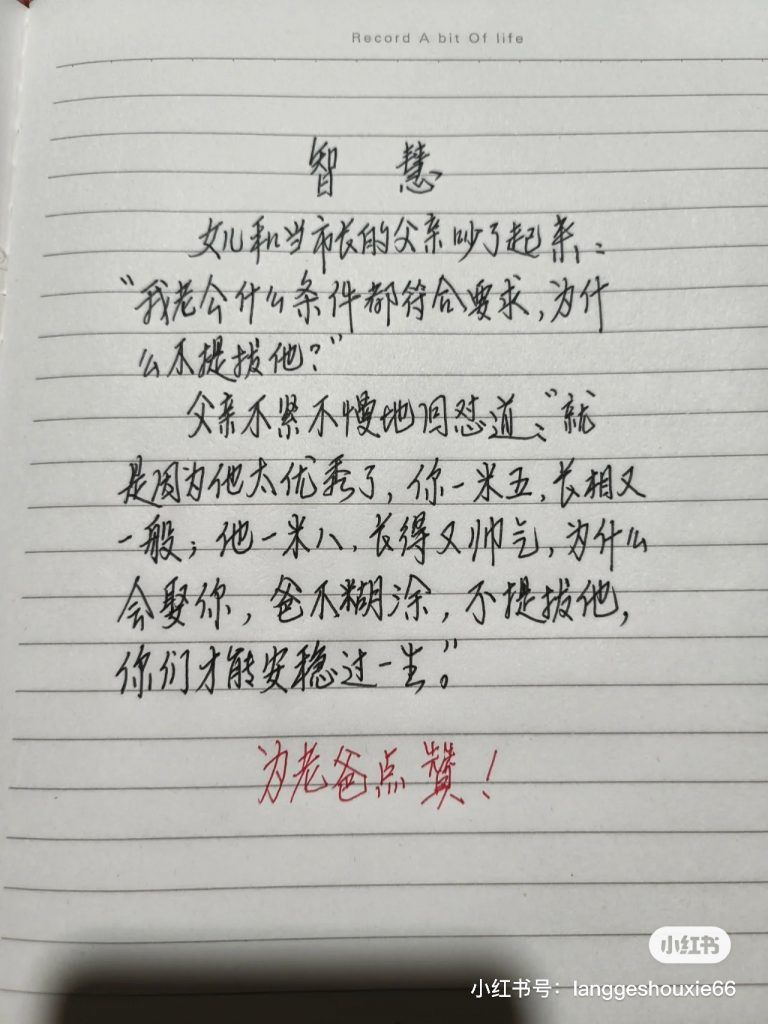 Record A bit Of life
智 慧
女儿和当市长的父亲吵了起来：
“我老公什么条件都符合要求，为什
么不提拔他？”
父亲不紧不慢地回怼道：“就
是因为他太优秀了，你一米五，长相又
一般；他一米八，长得又帅气，为什么
会娶你，爸不糊涂，不提拔他，
你们才能安稳过一生。”
为老爸点赞！
小红书
小红书号：langgeshouxie66